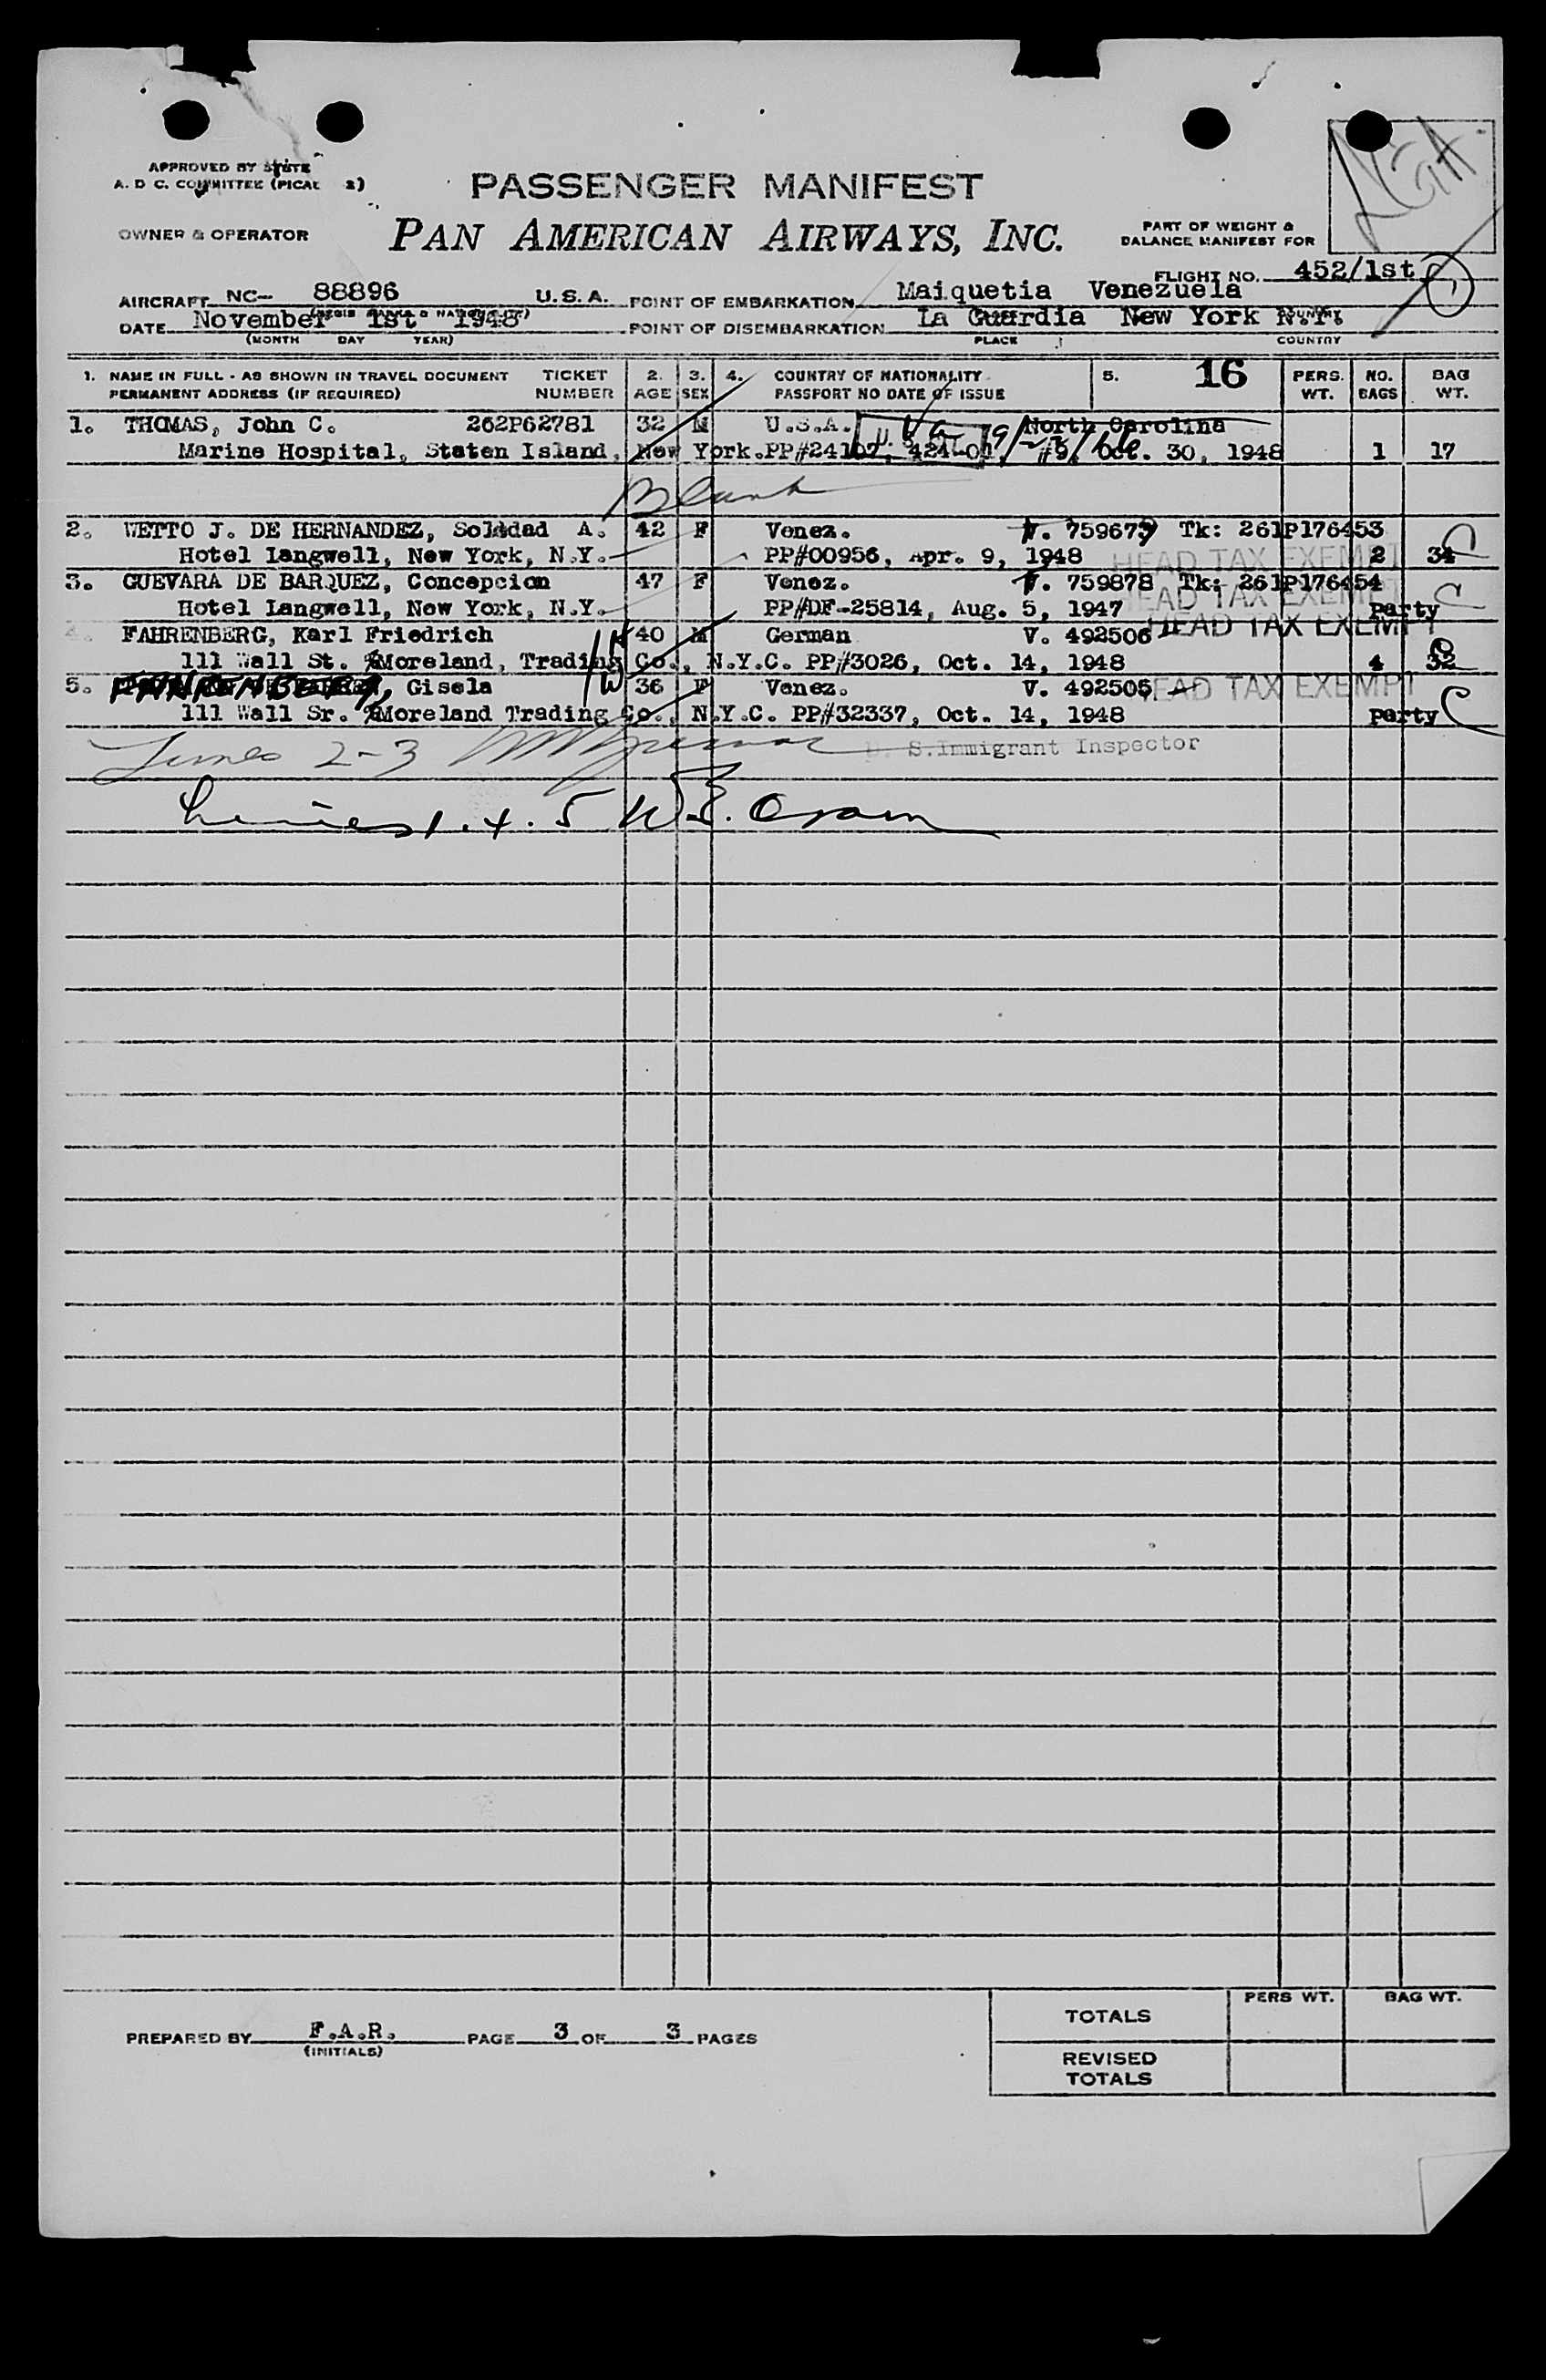 APPROVED BY STATE
A. D C. COMMITTEE (PICAE 2)
PASSENGER MANIFEST
OWNER & OPERATOR
PAN AMERICAN AIRWAYS, INC.
PART OF WEIGHT &
BALANCE MANIFEST FOR
FLIGHT NO. 452/1st
AIRCRAFT NC- 88896 U.S.A. POINT OF EMBARKATION Maiquetia Venezuela
DATE November 1st 1948 POINT OF DISEMBARKATION La Guardia New York N.Y.
(MONTH DAY YEAR) PLACE COUNTRY
1. NAME IN FULL - AS SHOWN IN TRAVEL DOCUMENT TICKET 2. 3. 4. COUNTRY OF NATIONALITY 5. 16 PERS. NO. BAG
PERMANENT ADDRESS (IF REQUIRED) NUMBER AGE SEX PASSPORT NO DATE OF ISSUE WT. BAGS WT.
1. THOMAS, John C. 262P62781 32 M U.S.A. Va North Carolina
Marine Hospital, Staten Island, New York. Oct. 30, 1948 1 17
Blank
2. WETTO J. DE HERNANDEZ, Soledad A. 42 F Venez. V. 759679 Tk: 261P176453
Hotel Langwell, New York, N.Y. PP#00956, Apr. 9, 1948 HEAD TAX EXEMPT 2 34
3. GUEVARA DE BARQUEZ, Concepcion 47 F Venez. V. 759878 Tk: 261P176454
Hotel Langwell, New York, N.Y. PP#DF-25814, Aug. 5, 1947 HEAD TAX EXEMPT Party
4. FAHRENBERG, Karl Friedrich 40 M German V. 492506 HEAD TAX EXEMPT
111 Wall St. Moreland, Trading Co., N.Y.C. PP#3026, Oct. 14, 1948 4 32
5. FAHRENBERG, Gisela 36 F Venez. V. 492505 HEAD TAX EXEMPT
111 Wall Sr. Moreland Trading Co., N.Y.C. PP#32337, Oct. 14, 1948 Party
Lines 2-3 U. S. Immigrant Inspector
Lines 1. 4. 5 W.E. Oram
PERS WT. BAG WT.
TOTALS
PREPARED BY F.A.R. PAGE 3 OF 3 PAGES
(INITIALS)
REVISED
TOTALS